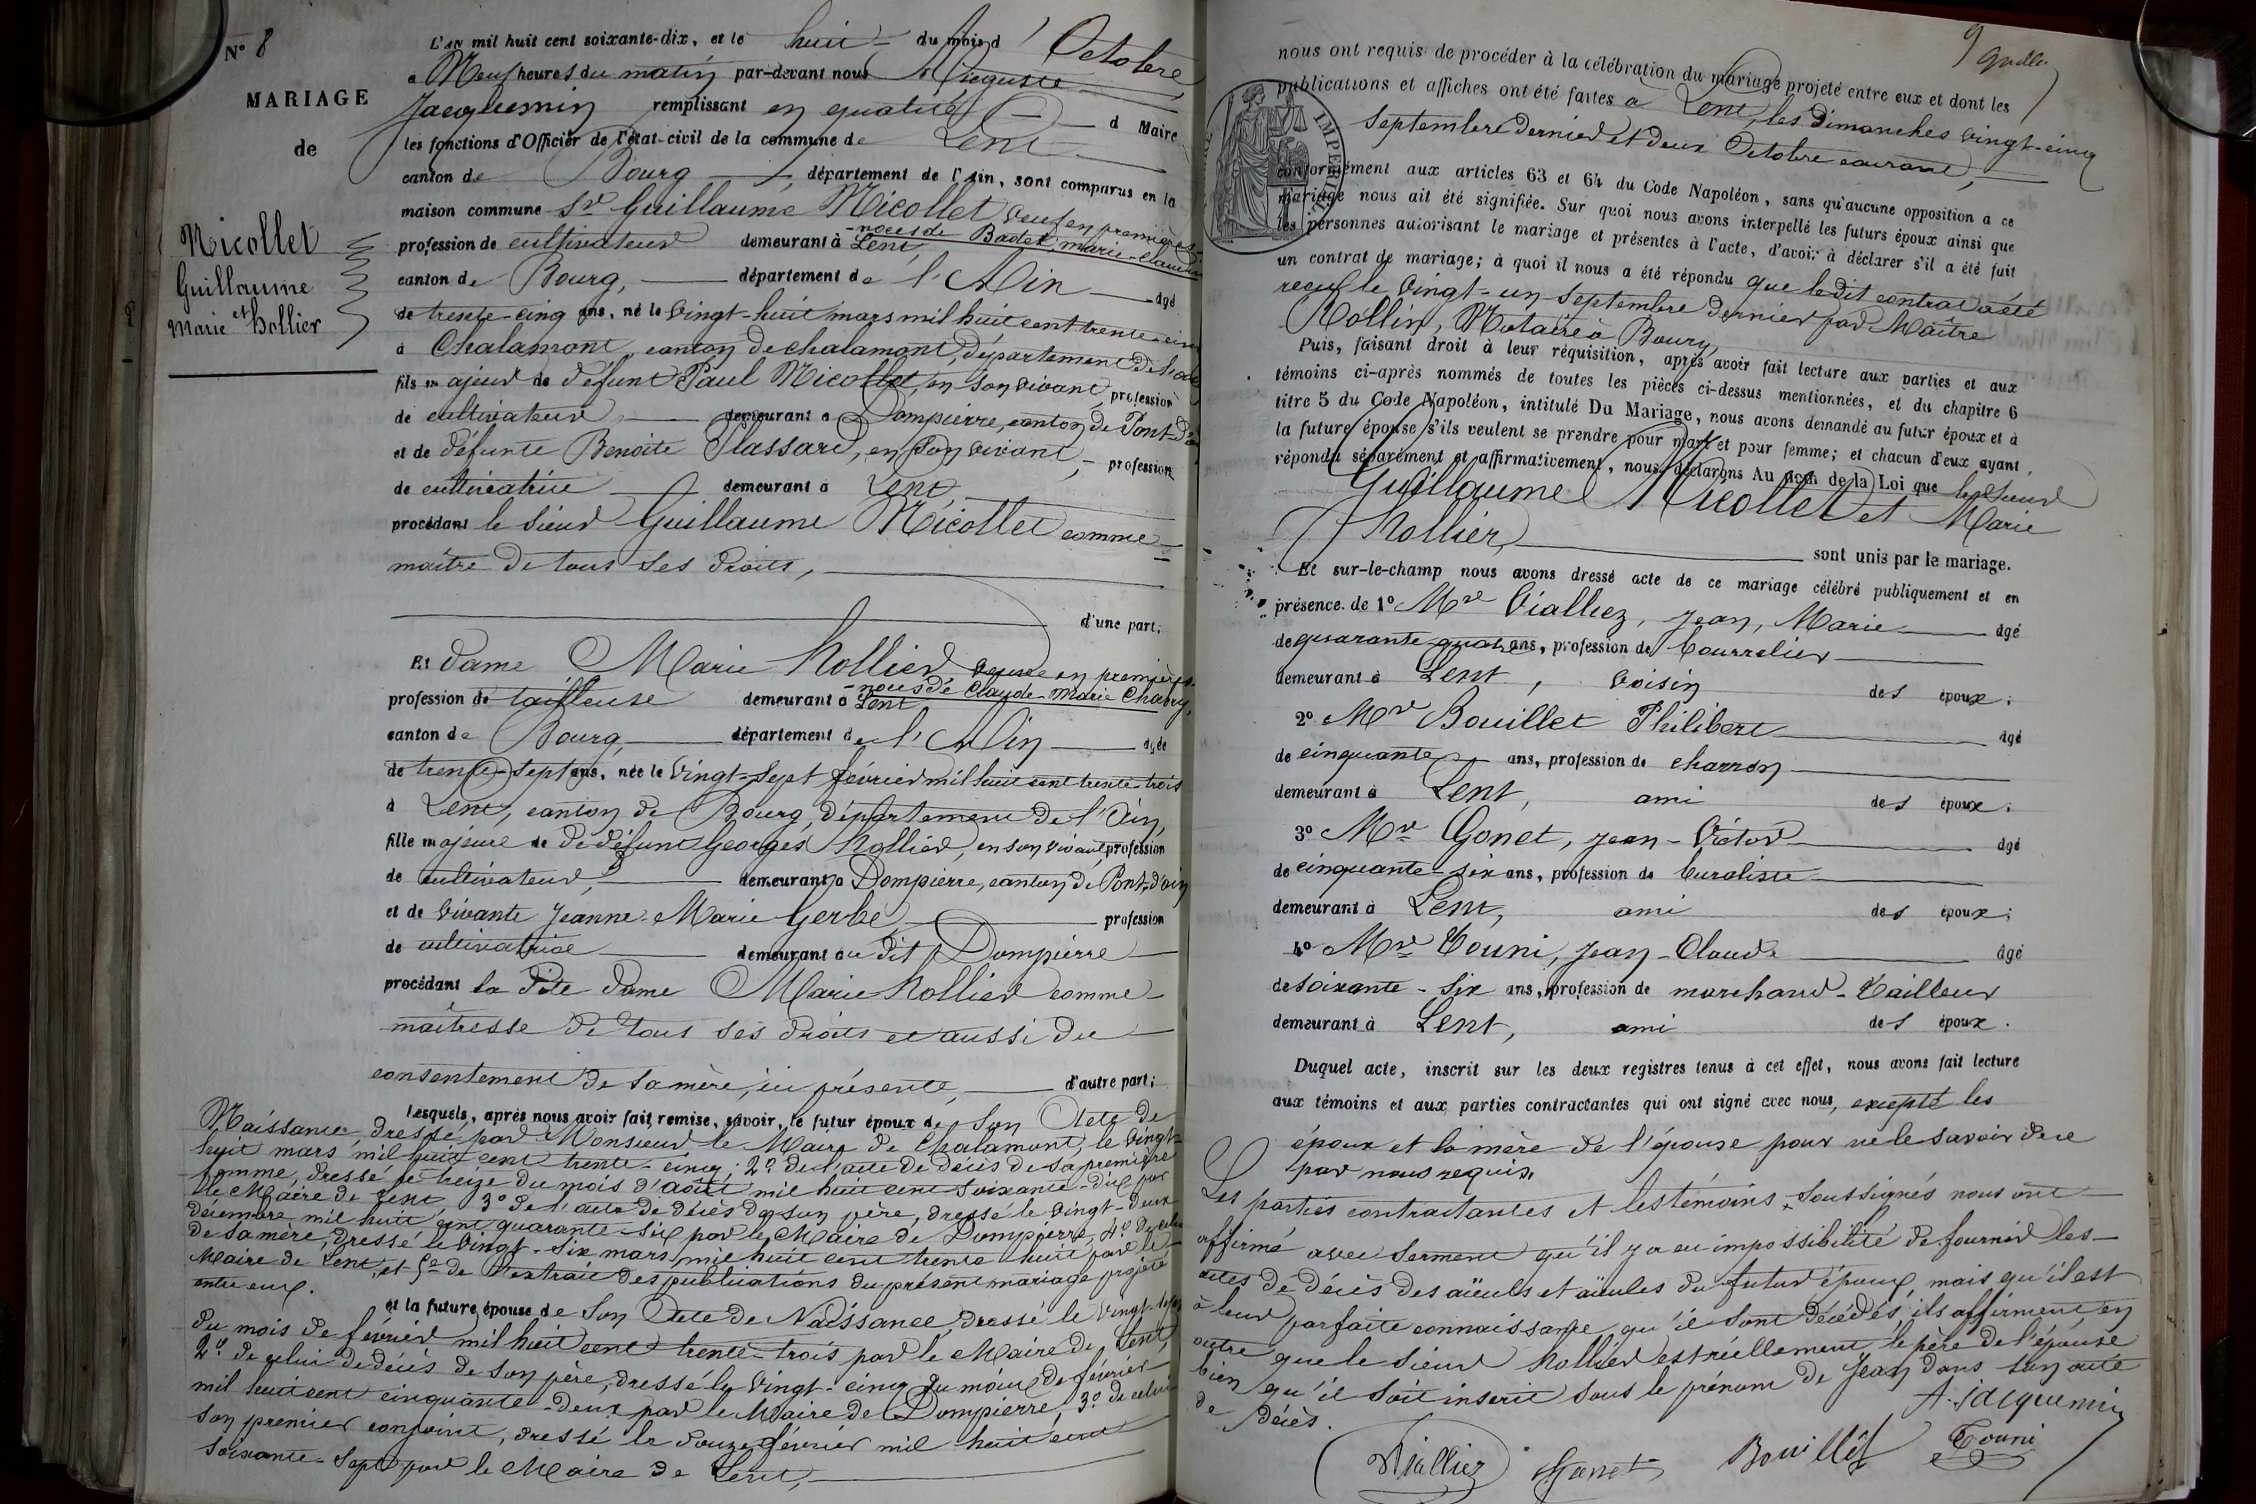 N° 8
MARIAGE
de
Nicollet
Guillaume
et
Marie Hollier
L'an mil huit cent soixante-dix, et le huit du mois d'Octobre
a Neuf heures du matin par-devant nous Auguste
Jacquemin remplissant en qualité d Maire
les fonctions d'Officier de l'état-civil de la commune de Lent
canton de Bourg, département de l'Ain, sont comparus en la
maison commune Sr Guillaume Nicollet, veuf en premières
-noces de Badet, marie-Claudine
profession de cultivateur demeurant à Lent,
canton de Bourg, département de l'Ain âgé
de trente-cinq ans, né le vingt-huit mars mil huit cent trente-cinq
à Chalamont, canton de chalamont, département de l'ain
fils majeur de défunt Paul Nicollet, en son vivant, profession
de cultivateur demeurant à Dompierre, canton de Pont-d'ain
et de défunte Benoite Plassard, en son vivant, profession
de cultivatrice demeurant à Lent,
procédant le sieur Guillaume Nicollet comme
maître de tous ses droits,
d'une part;
Et dame Marie Hollier veuve en premières
-noces de Claude-Marie Chabry,
profession de tailleuse demeurant à Lent
canton de Bourg, département de l'Ain âgée
de trente-sept ans, née le vingt-sept février mil huit cent trente-trois
à Lent, canton de Bourg, département de l'Ain,
fille majeure de de défunt Georges Hollier, en son vivant, profession
de cultivateur, demeurant à Dompierre, canton de Pont-d'ain
et de vivante Jeanne-Marie Gerbe, profession
de cultivatrice demeurant au dit Dompierre
procédant la dite dame Marie Hollier comme
maîtresse de tous ses droits et aussi du
consentement de sa mère, ici présente, d'autre part;
Lesquels, après nous avoir fait remise, savoir, le futur époux de Son Acte de
Naissance, dressé par Monsieur le Maire de Chalamont, le vingt-
huit mars mil huit cent trente-cinq; 2° de l'acte de décès de sa première
femme, dressé le treize du mois d'août mil huit cent soixante-dix par
le Maire de Lent, 3° de l'acte de décès de son père, dressé le vingt-deux
décembre mil huit cent quarante-six par le Maire de Dompierre, 4° de celui
de sa mère, dressé le vingt-six mars mil huit cent trente huit par le
Maire de Lent et 5° de l'extrait des publications du présent mariage projeté
entre eux.
et la future épouse de Son Acte de Naissance, dressé le vingt-sept
du mois de février mil huit cent trente-trois par le Maire de Lent,
2° de celui de décès de son père, dressé le vingt-cinq du mois de février
mil huit cent cinquante-deux par le Maire de Dompierre, 3° de celui
son premier conjoint, dressé le douze février mil huit cent
soixante-sept par le Maire de Lent,
9
nous ont requis de procéder à la célébration du mariage projeté entre eux et dont les
publications et affiches ont été faites à Lent, les dimanches vingt-cinq
septembre dernier et deux Octobre courant,
IMPERIAL
conformément aux articles 63 et 64 du Code Napoléon, sans qu'aucune opposition a ce
mariage nous ait été signifiée. Sur quoi nous avons interpellé les futurs époux ainsi que
les personnes autorisant le mariage et présentes à l'acte, d'avoir à déclarer s'il a été fait
un contrat de mariage; à quoi il nous a été répondu que ledit contrat a été
reçu le vingt-un septembre dernier par Maître
Rollin, Notaire à Bourg,
Puis, faisant droit à leur réquisition, après avoir fait lecture aux parties et aux
témoins ci-après nommés de toutes les pièces ci-dessus mentionnées, et du chapitre 6
titre 5 du Code Napoléon, intitulé Du Mariage, nous avons demandé au futur époux et à
la future épouse s'ils veulent se prendre pour mari et pour femme; et chacun d'eux ayant
répondu séparément et affirmativement, nous déclarons Au nom de la Loi que le Sieur
Guillaume Nicollet et Marie
Hollier, sont unis par le mariage.
Et sur-le-champ nous avons dressé acte de ce mariage célébré publiquement et en
présence de 1° Mr Vialliez, Jean, Marie âgé
de quarante-quatre ans, profession de bourrelier
demeurant à Lent, voisin des époux;
2° Mr Bouillet Philibert âgé
de cinquante ans, profession de charron
demeurant à Lent, ami des époux;
3° Mr Gonet, Jean-Victor âgé
de cinquante-six ans, profession de buraliste
demeurant à Lent, ami des époux;
4° Mr Touni, Jean-Claude âgé
de soixante-six ans, profession de marchand-tailleur
demeurant à Lent, ami des époux.
Duquel acte, inscrit sur les deux registres tenus à cet effet, nous avons fait lecture
aux témoins et aux parties contractantes qui ont signé avec nous, excepté les
époux et la mère de l'épouse pour ne le savoir de ce
par nous requis.
Les parties contractantes et les témoins soussignés nous ont
affirmé avec serment qu'il y a eu impossibilité de fournir les
actes de décès des aïeuls et aïeules du futur époux, mais qu'il est
à leur parfaite connaissance qu'il sont décédés, ils affirment, en
outre que le sieur Hollier est réellement le père de l'épouse
bien qu'il soit inscrit sous le prénom de Jean dans son acte
de décès.
A. Jacquemin
Vialliez Gonet Bouillet Touni